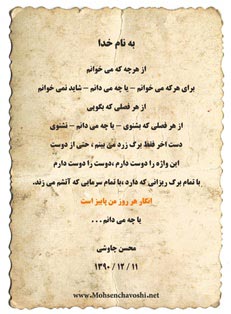 به نام خدا
از هرچه که می خوانم
برای هرکه می خوانم – یا چه می دانم – شاید نمی خوانم
از هر فصلی که بگویی
از هر فصلی که بشنوی – یا چه می دانم – نشنوی
دست آخر فقط برگ زرد می بینم ، حتی از دوست
این واژه را دوست دارم ،دوست را دوست دارم
با تمام برگ ریزانی که دارد ،با تمام سرمایی که آتشم می زند.
انگار هر روز من پاییز است
یا چه می دانم . . .
محسن چاوشی
۱۳۹۰ / ۱۲ / ۱۱
www.Mohsenchavoshi.net